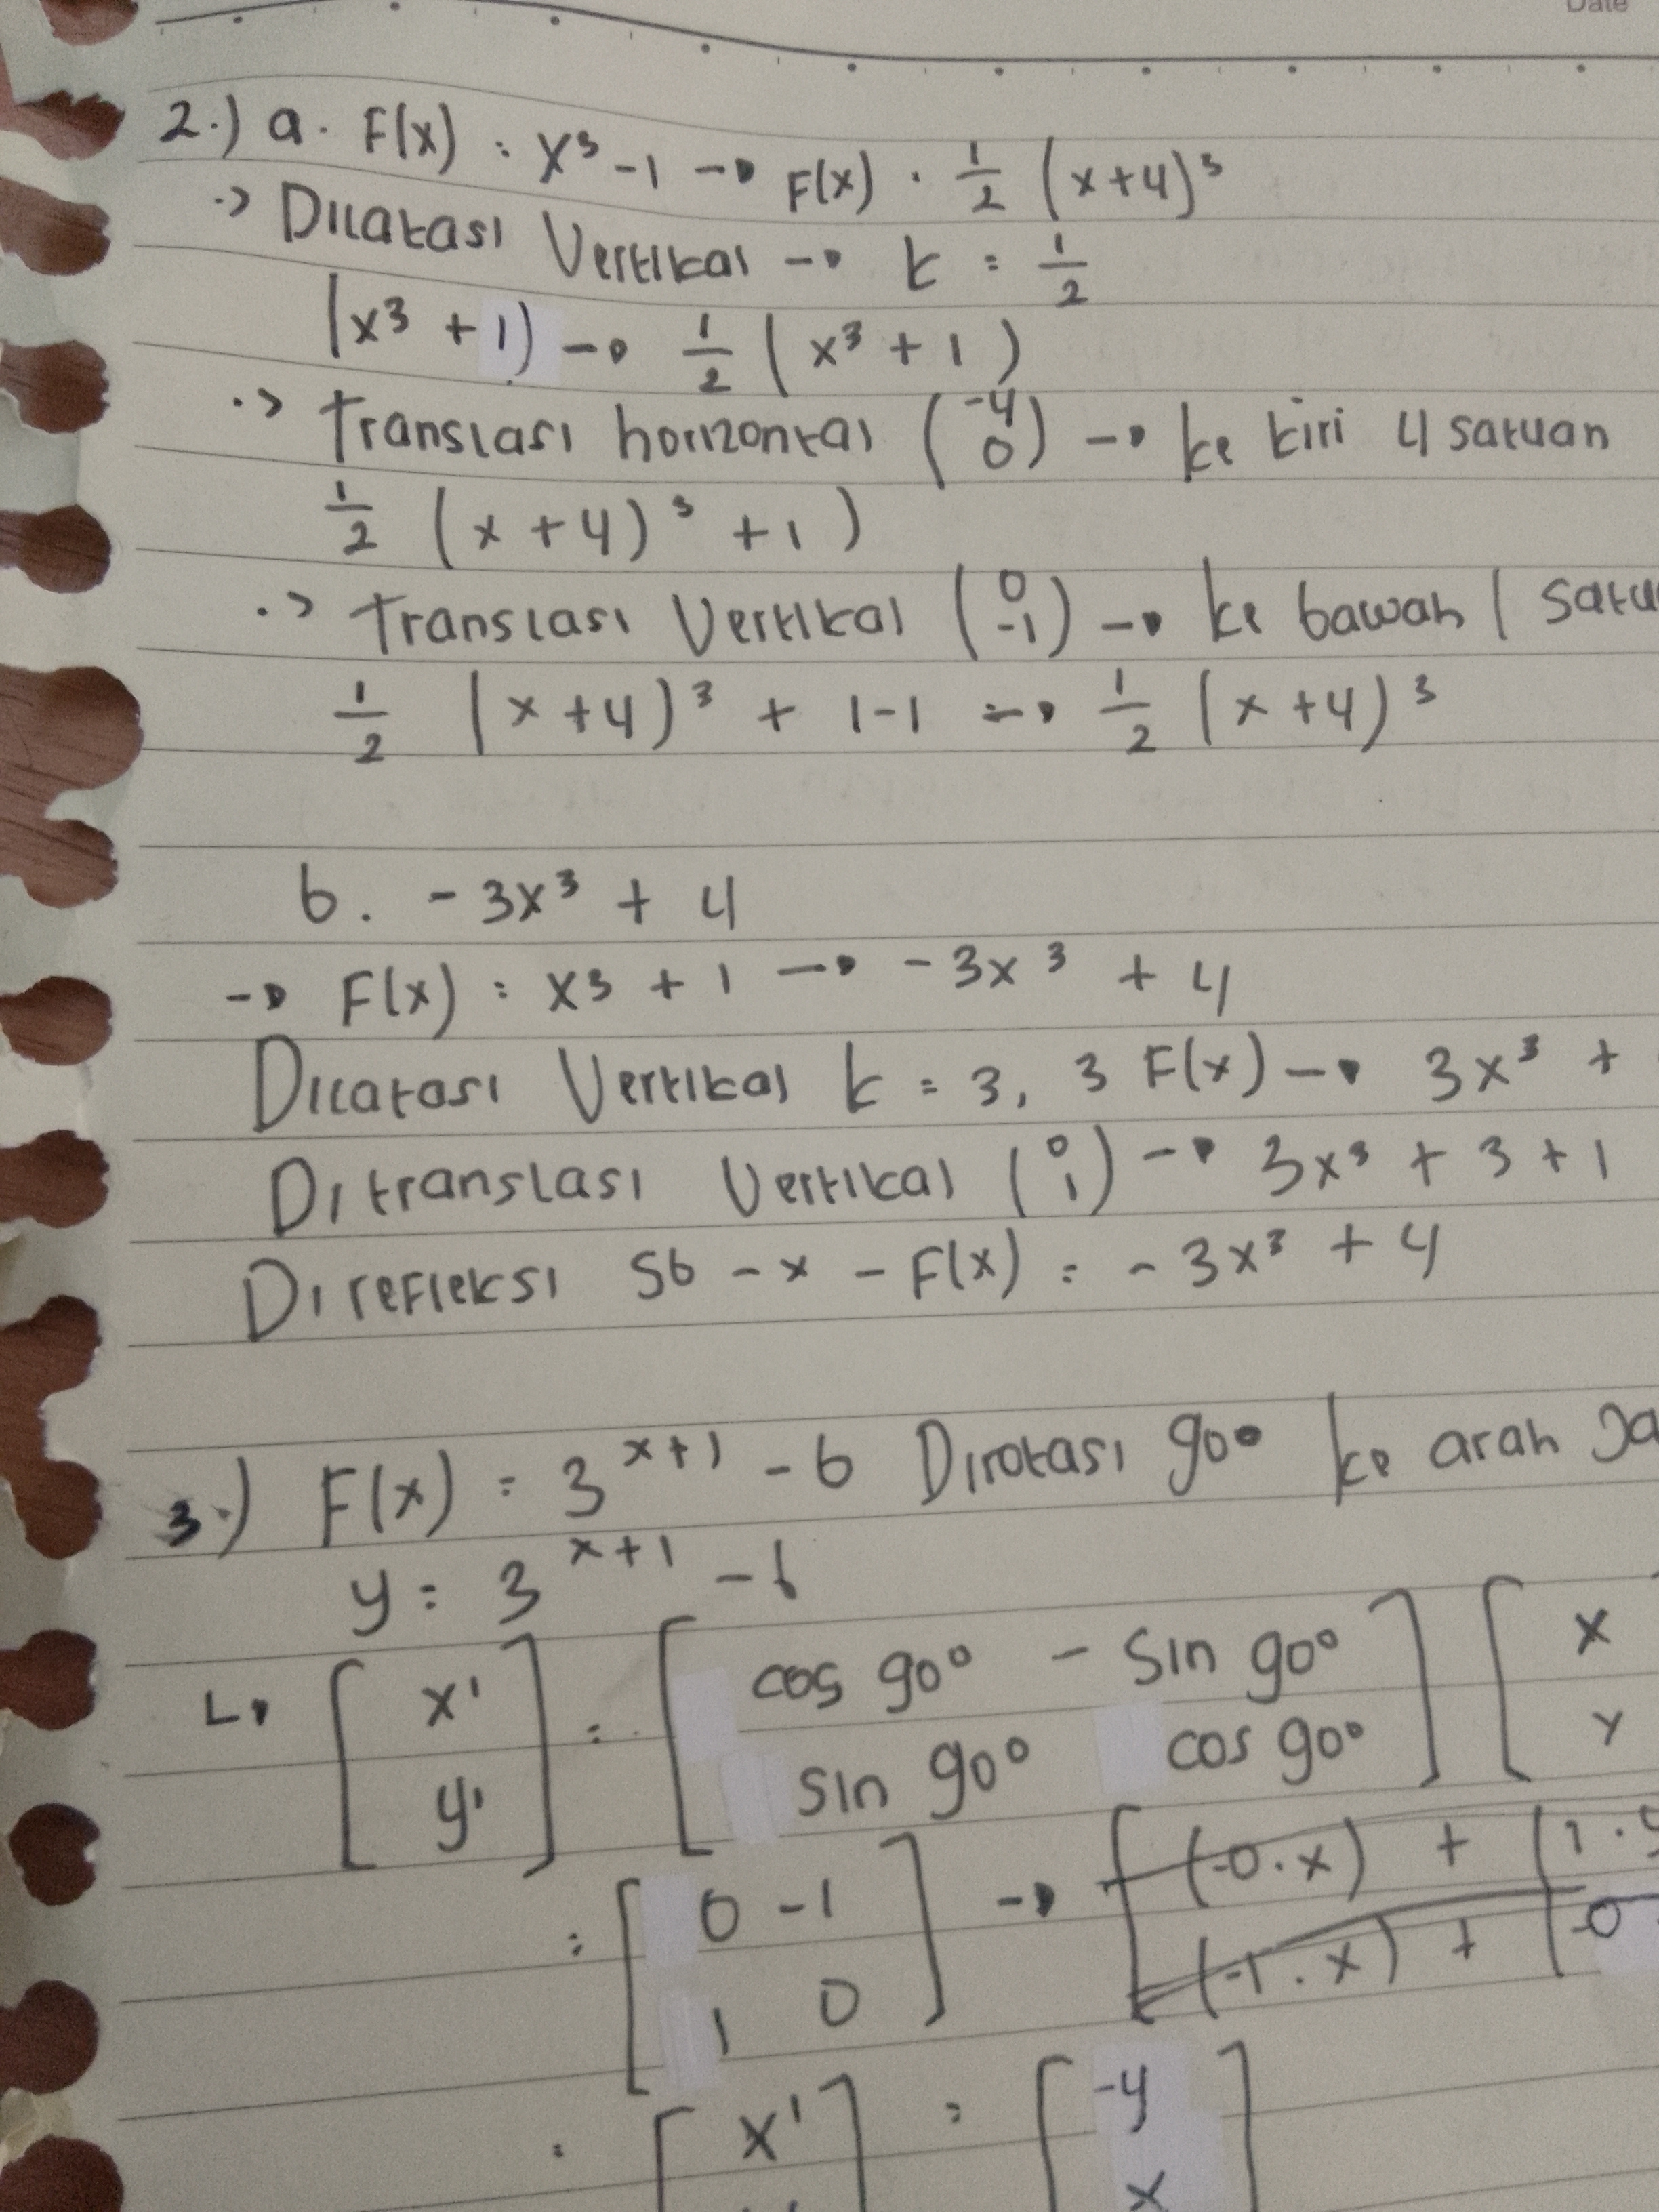 Date
2.) a. F(x) : x³ - 1 → F(x) . 1/2 (x+4)³
.> Dilatasi Vertikal → k = 1/2
(x³ + 1) → 1/2 (x³ + 1)
.> Translasi horizontal (-4 0) → ke kiri 4 satuan
1/2 (x + 4)³ + 1)
.> Translasi Vertikal (0 -1) → ke bawah 1 satu
1/2 (x + 4)³ + 1 - 1 → 1/2 (x + 4)³
b. - 3x³ + 4
→ F(x) : x³ + 1 → - 3x³ + 4
Dilatasi Vertikal k = 3, 3 F(x) → 3x³ +
Ditranslasi Vertikal (0 1) → 3x³ + 3 + 1
Direfleksi Sb - x - F(x) = - 3x³ + 4
3.) F(x) : 3^(x+1) - 6 Dirotasi 90° ke arah Ja
y = 3^(x+1) - 6
↳ [x' y'] = [cos 90° - sin 90° sin 90° cos 90°] [x y
= [0 -1 1 0] → [(-0.x) + (1.y (-1.x) + (-0
= [x' = [-y x